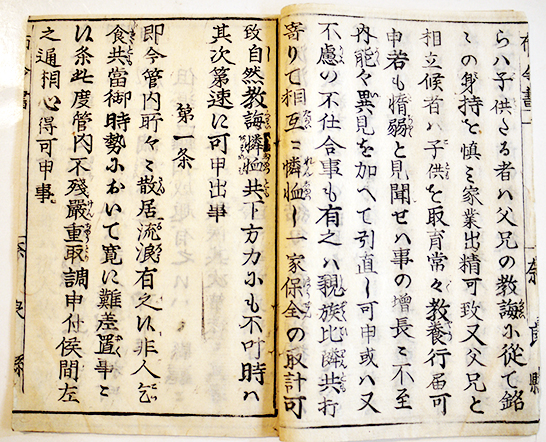 らハ子供たる者ハ父兄の教誨に従て銘
ミの身持を慎ミ家業出精可致又父兄と
相立候者ハ子供を取育常々教養行届可
申若も惰弱と見聞せハ事の増長ニ不至
内能々異見を加へて引直し可申或ハ又
不慮の不仕合事も有之ハ親族比隣共打
寄りて相互ニ憐恤し一家保全の取計可
致自然教誨憐恤共下方力にも不叶時ハ
其次第速に可申出事
第一条
即今管内所々ミ散居流浪有之候非人乞
食共當御時勢において寛に難差置事ニ
候条此度管内不残嚴重取調申付候間左
之通相心得可申事
奈良縣